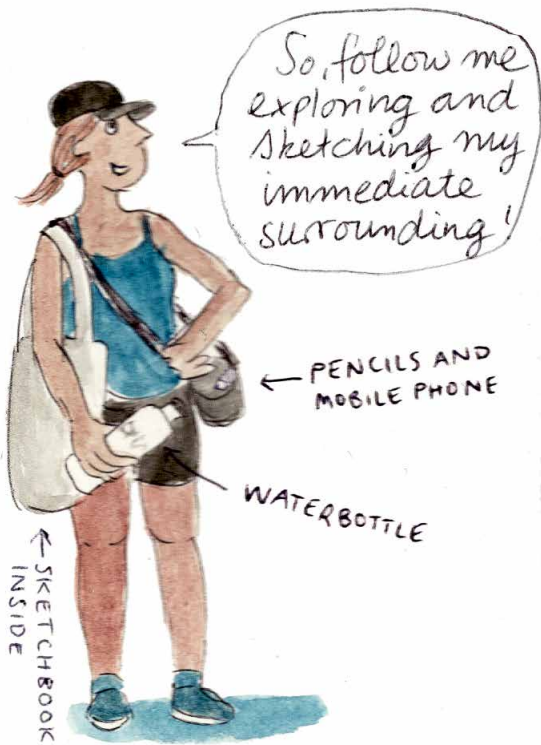 So, follow me
exploring and
sketching my
immediate
surrounding!
← PENCILS AND
MOBILE PHONE
WATERBOTTLE
← SKETCHBOOK
INSIDE